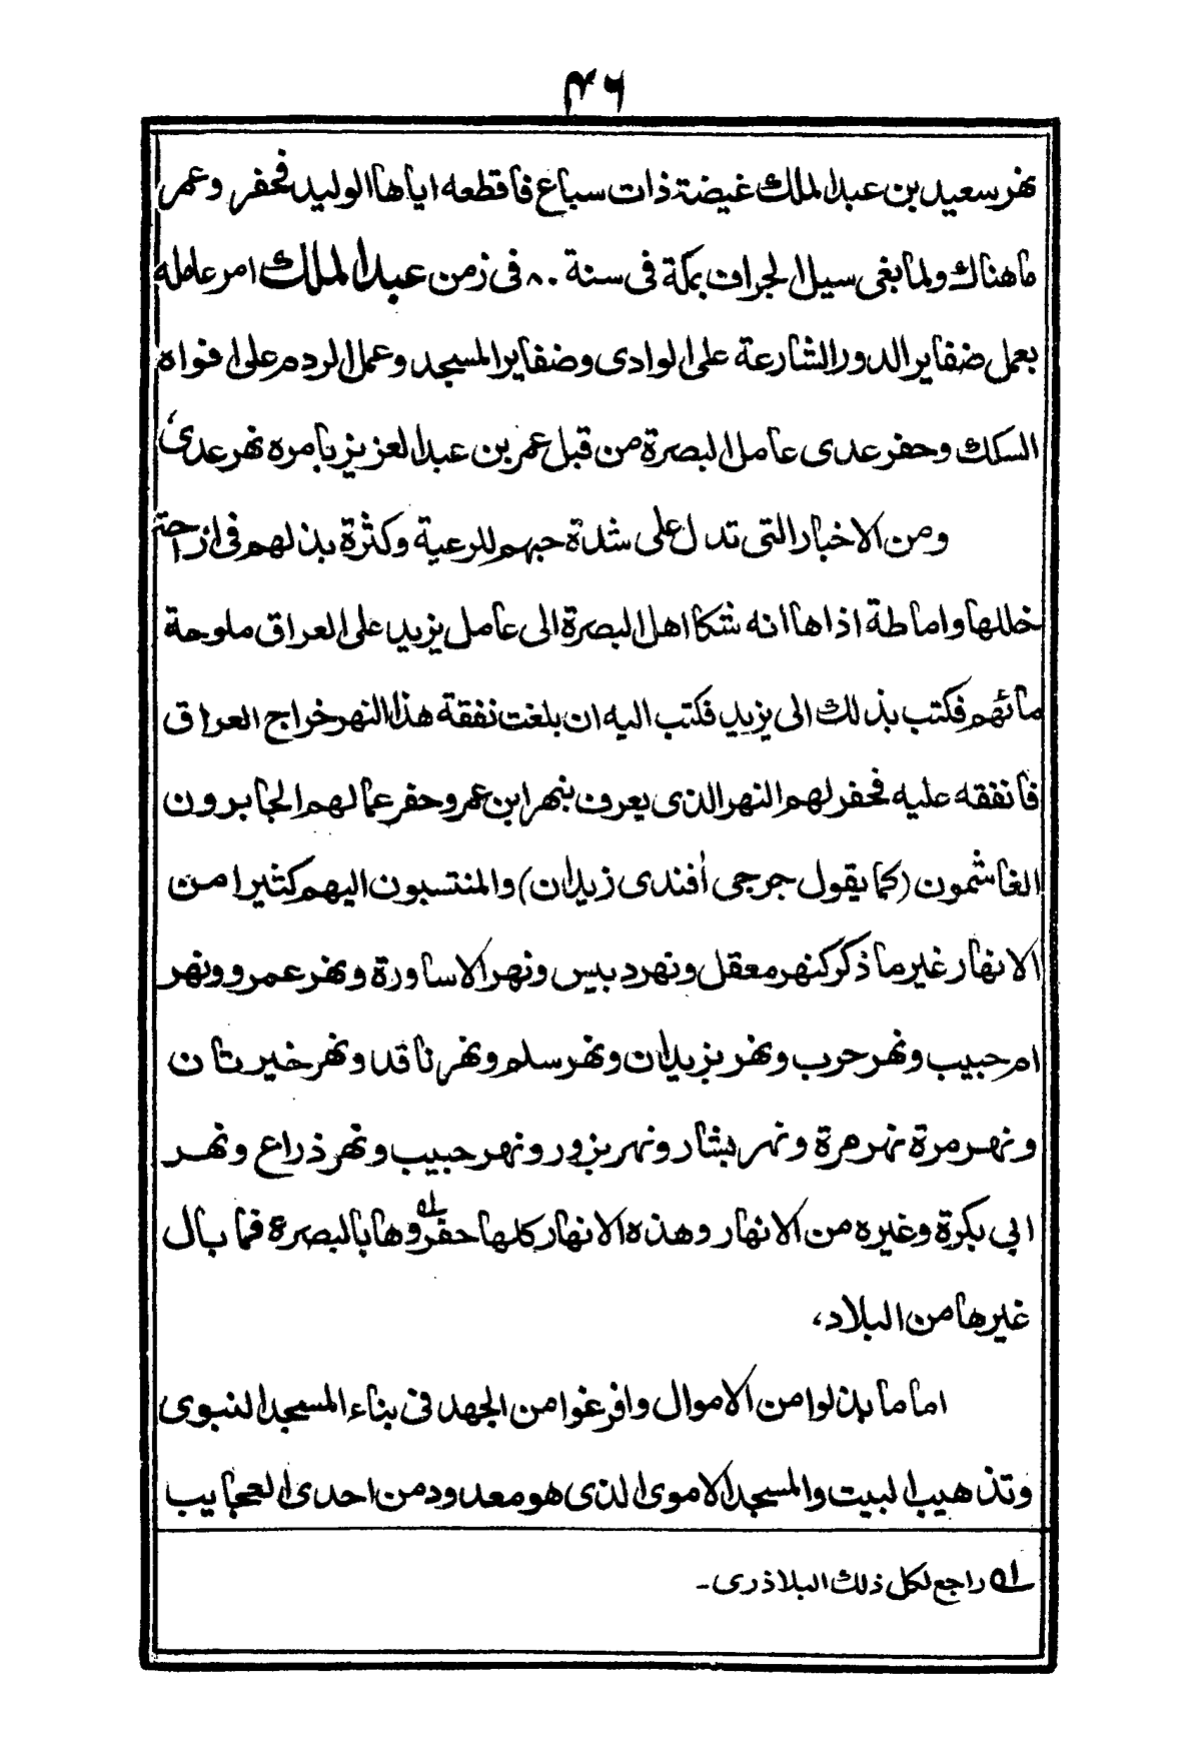 ۴۶
نهر سعيد بن عبد الملك غيضة ذات سباع فاقطعه اياها الوليد فحفر وعمر
ما هناك ولما بغى سيل الجراف بمكة فى سنة ۸۰ فى زمن عبد الملك امر عامله
بعمل ضفاير الدور الشارعة على الوادى وضفاير المسجد وعمل الردم على افواه
السكك وحفر عدى عامل البصرة من قبل عمر بن عبد العزيز بامره نهر عدى،
ومن الاخبار التى تدل على شدة حبهم للرعية وكثرة بذلهم فى ازاحة
خللها واماطة اذاها انه شكا اهل البصرة الى عامل يزيد على العراق ملوحة
مائهم فكتب بذلك الى يزيد فكتب اليه ان بلغت نفقة هذا النهر خراج العراق
فانفقه عليه فحفر لهم النهر الذى يعرف بنهر ابن عمر وحفر عمالهم الجابرون
الغاشمون (كما يقول جرجى أفندى زيدان) والمنتسبون اليهم كثيرا من
الانهار غير ما ذكر كنهر معقل ونهر دبيس ونهر الاساورة ونهر عمرو ونهر
ام حبيب ونهر حرب ونهر يزيدان ونهر سلم ونهر ناقد ونهر خيرتان
ونهر مرة نهر مرة ونهر بشار ونهر بزور ونهر حبيب ونهر ذراع ونهر
ابي بكرة وغيره من الانهار وهذه الانهار كلها حفروها بالبصرة فما بال
غيرها من البلاد،
اما ما بذلوا من الاموال وافرغوا من الجهد فى بناء المسجد النبوى
وتذهيب البيت والمسجد الاموى الذى هو معدود من احدى العجايب
لـه راجع لكل ذلك البلاذرى ـ